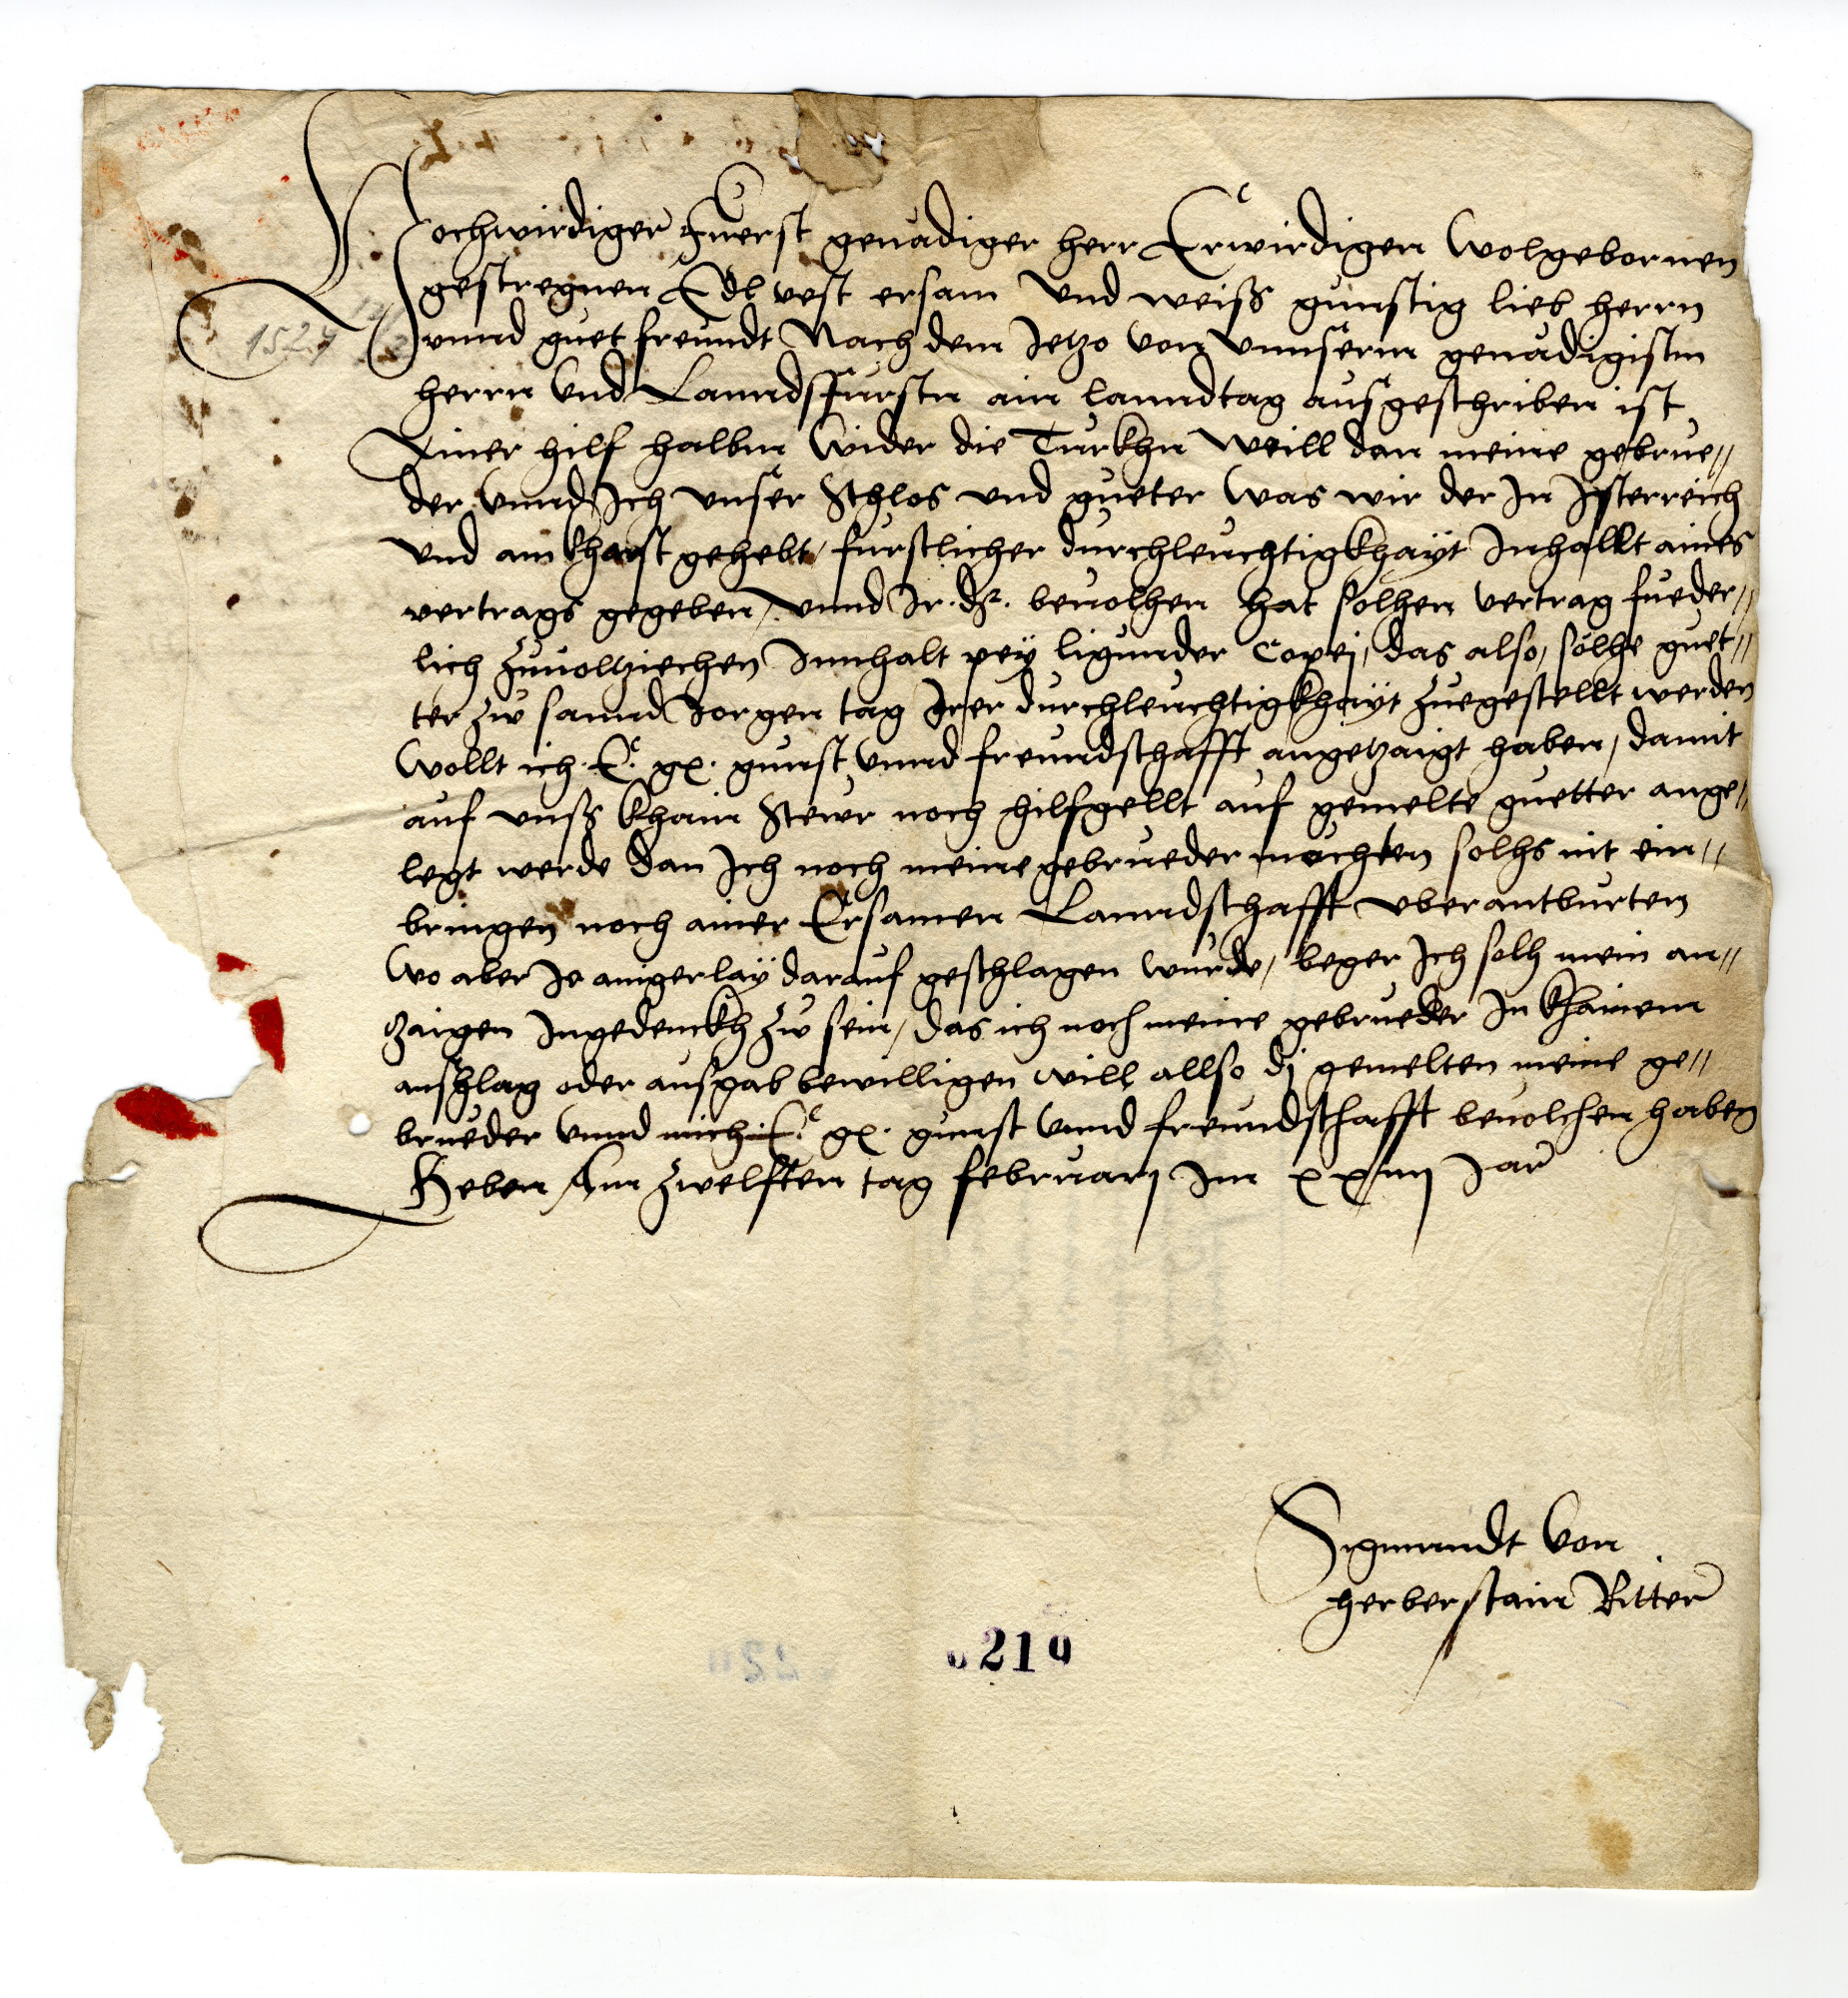 Hochwirdiger Fuerst genadiger herr Erwirdigen Wolgebornen
gestrengen Edl vest ersam Vnd weiss gunstig lieb herrn
vnnd guet freundt Nach dem Jetzo von Vnnserm genadigistn
herrn Vnd Lanndsfursten ain lanndtag ausgeschriben ist
Ainer hilf halbm Wider die Turkhn Weill dan meine gebrue//
der Vnnd Ich vnser Schlos vnd gueter Was wir der In Isterreich
vnd am kharst gehebt / furstlicher durchleuchtigkhayt Inhallt aines
vertrags gegeben / Vnnd Ir. dt. beuolhen hat solhen vertrag fueder//
lich zuuoltziechen Innhalt pey ligunder Copej / das also / solhe guet//
ter zw sannd Jorgen tag Irer durchleuchtigkhayt zuegestellt werden
Wollt ich E. gn. gunst Vnnd freundschafft angetzaigt haben / damit
auf vnss khain Stewr noch hilfgellt auf gemelte guetter ange//
legt werde dan Ich noch meine gebrueder mochten solhs nit ein//
bringen noch ainer Ersamen Lanndschafft vberantburten
Wo aber Je ainigerlay darauf geschlagen wurde / beger Ich solh mein an//
zaigen Ingedenckh zw sein / das ich noch meine gebrueder In khainem
anschlag oder ausgab bewilligen will allso dj gemelten meine ge//
brueder Vnnd mich E. gn. gunst Vnnd freundschafft beuolchen haben
Geben Am zwelften tag februarj Im xxiiij Jar
Sigmundt von
herberstain Ritter
1524
219